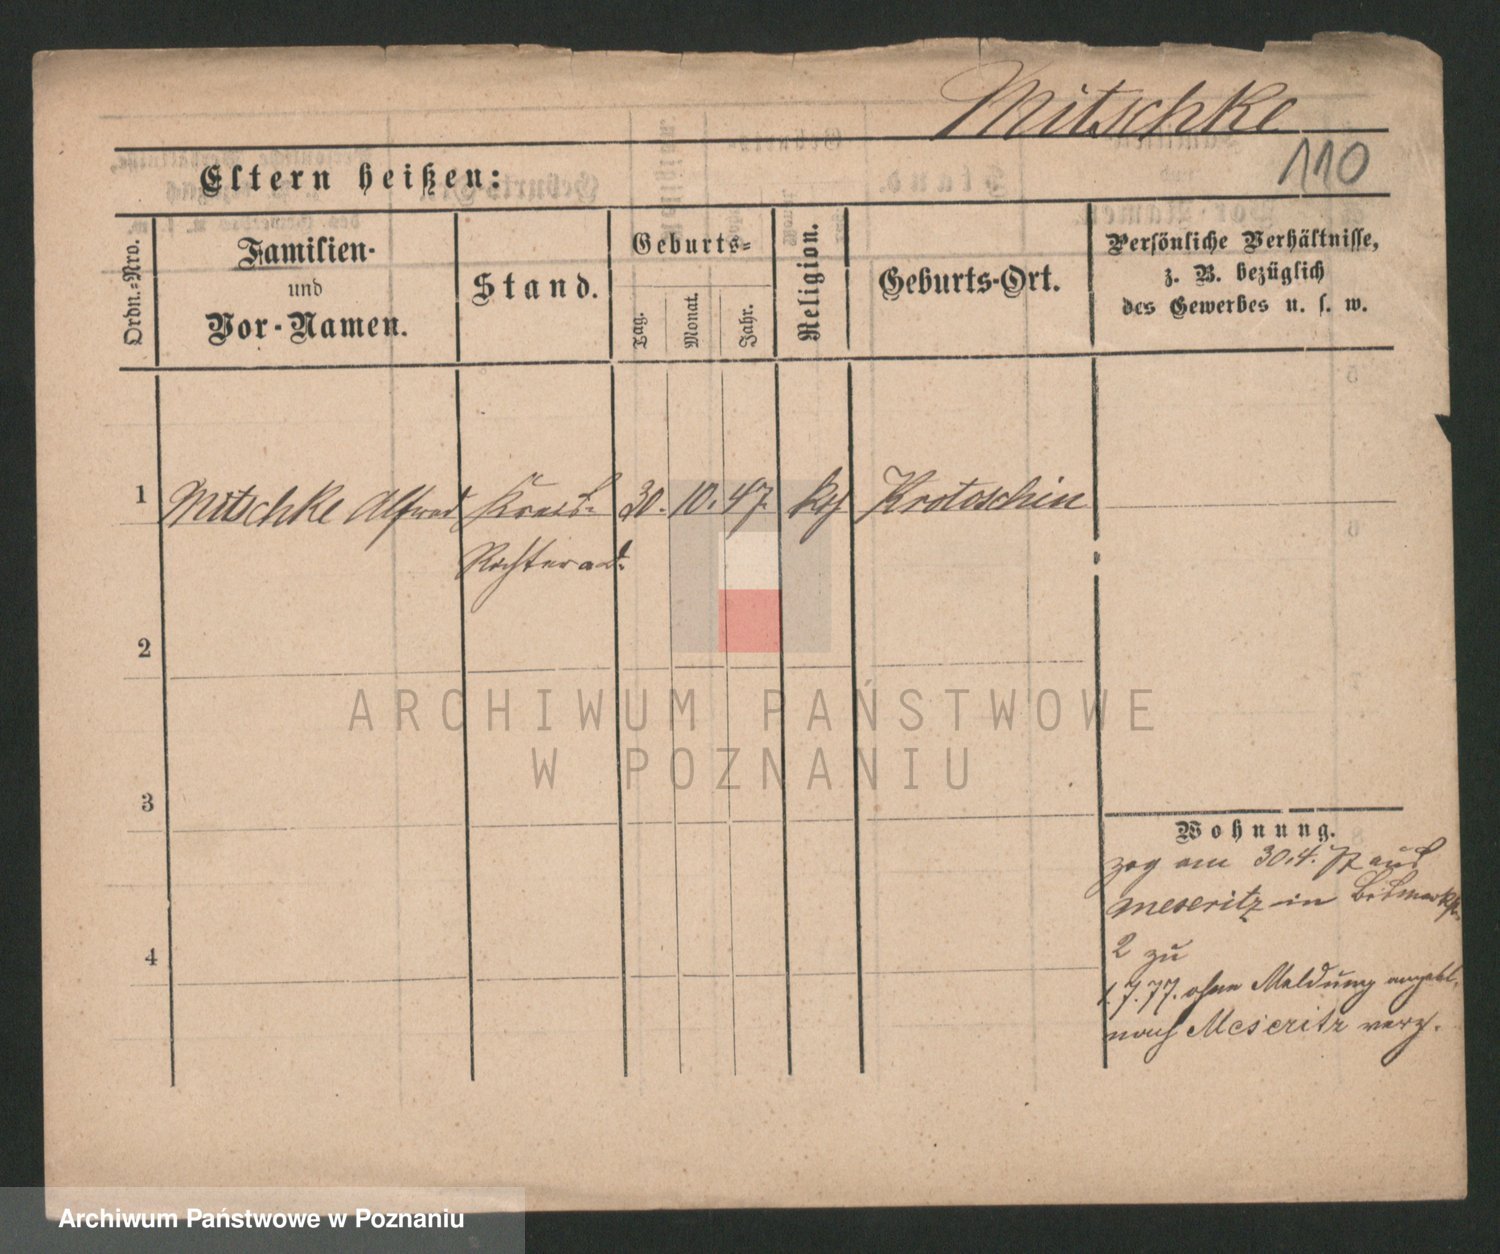 Mitschke
110
Eltern heißen:
Ordn.-Nro.
Familien-
und
Vor-Namen.
Stand.
Geburts-
Tag.
Monat.
Jahr.
Religion.
Geburts-Ort.
Persönliche Verhältnisse,
z. B. bezüglich
des Gewerbes u. s. w.
1 Mitschke Alfred Kreis- 30. 10. 47. Krotoschin
Richter a.d.
2
3
4
Wohnung.
zog am 30.4. 77 aus
Meseritz in Bismarckstr.
2 zu
1.7.77. ohne Meldung angebl.
nach Meseritz verz.
ARCHIWUM PAŃSTWOWE
W POZNANIU
Archiwum Państwowe w Poznaniu